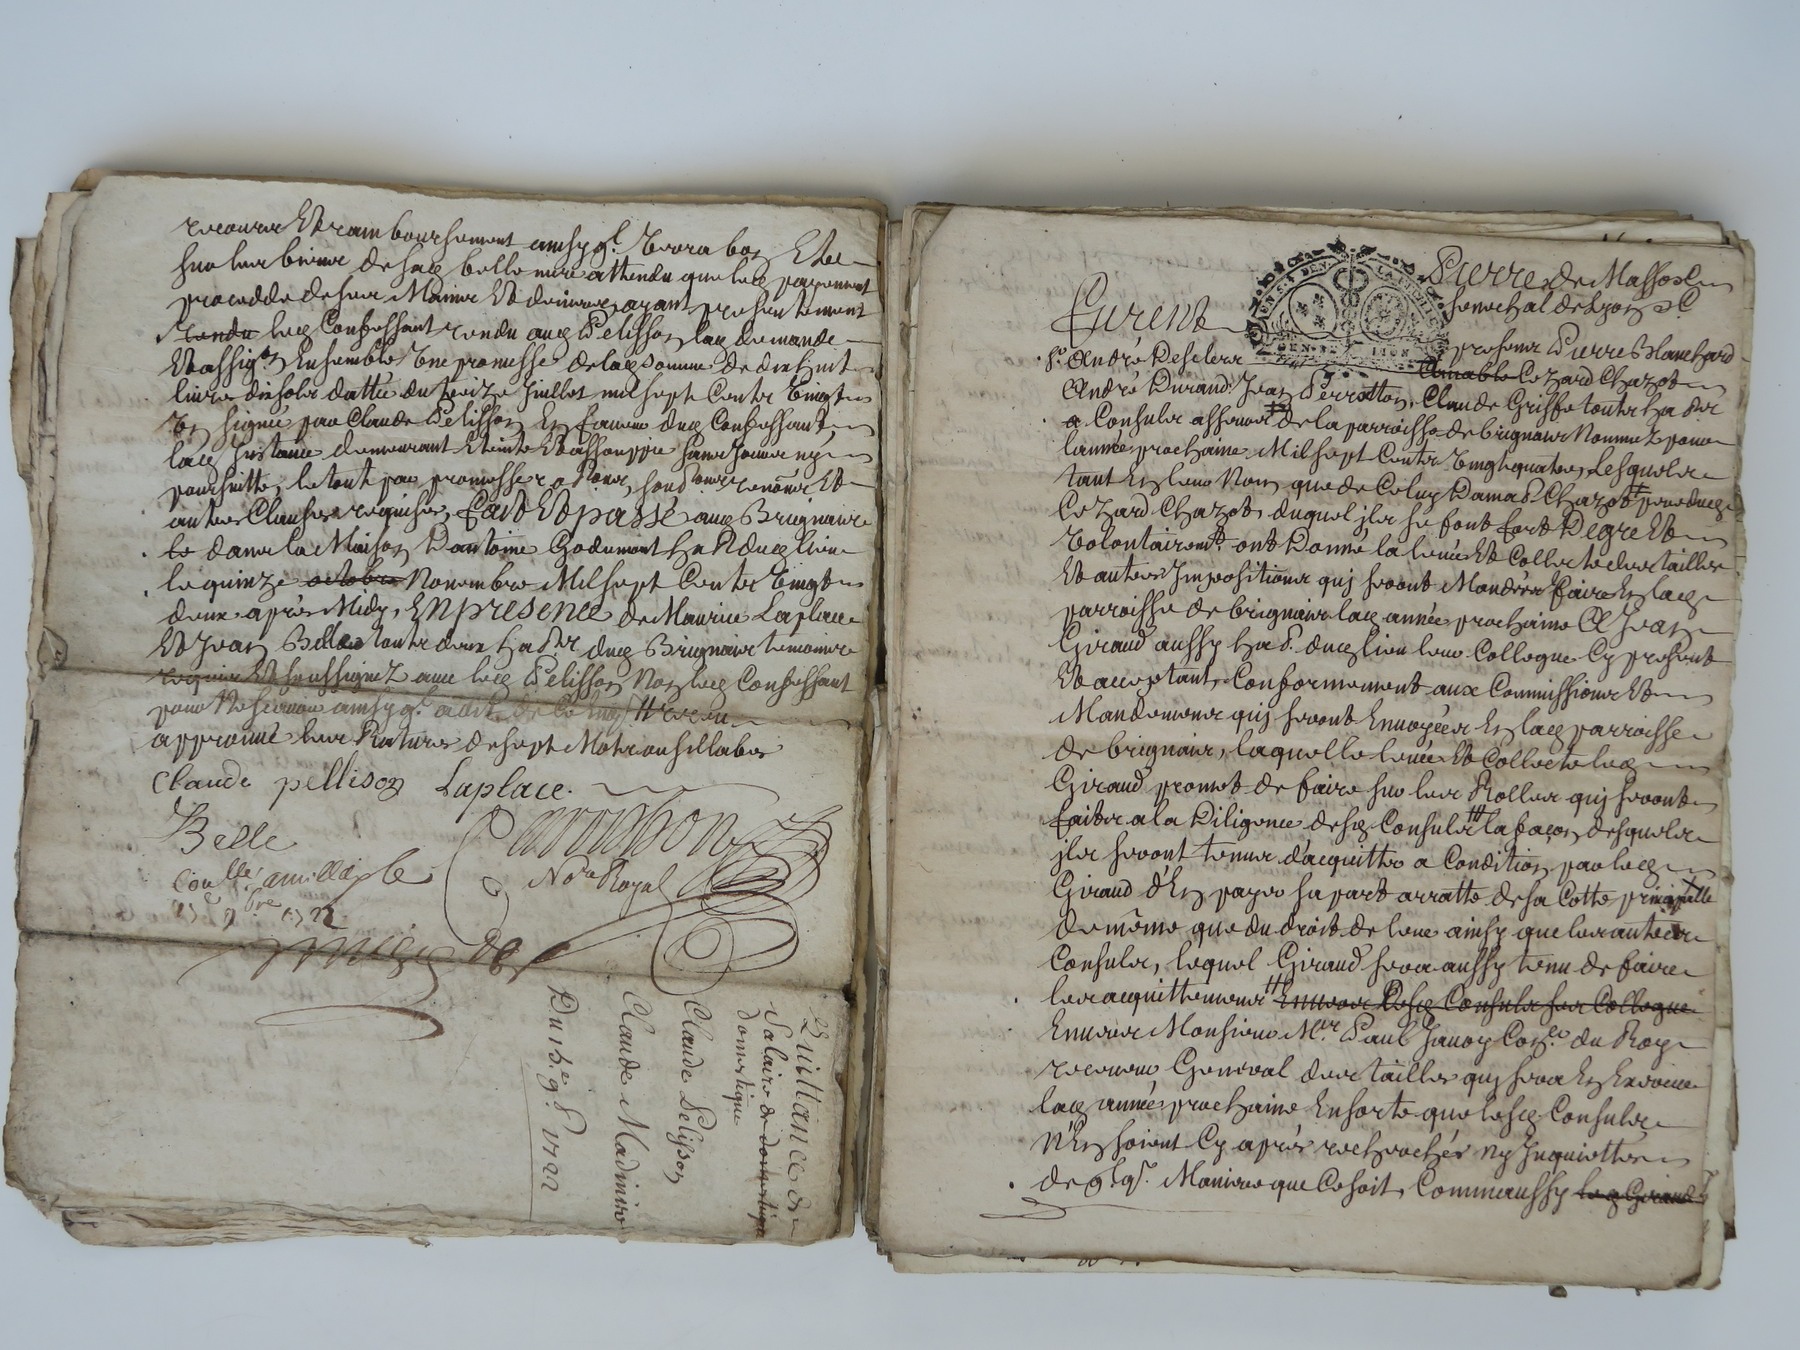 recours Et rambourssement ainsy q.l verra bon Et ce
sur les biens de sad belle mere attendu que led payement
procedde de ses Mains Et deniers, ayant presentement
rendu led Confessant rendu aud Pelisson lad demande
Et assig.on Ensemble Une promesse de lad somme de dix huit
livres dix sols dattée du treize Juillet mil sept Cents Vingt
Un signée par Claude Pelisson En faveur dud Confessant,
lad Instance demeurant Eteinte Et assouppie sans Jouer ny
poursuitte, le tout par promesses obligaons, soub.ons renōns Et
autres Clauses requises, Fait Et passé aud Brignais
le dans la Maison D'antoine Godemont ha.nt dud lieu
le quinze octobre Novembre Mil sept Cents Vingt
deux après Midy, En presence de Maurice Laplace
Et Jean Belle touts deux ha.nts dud Brignais temoins
requis Et soussignez avec led Pelisson Non led Confessant
pour ne scavoir ainsy q.l a dit de Ce Enq.
approuvé les Ratures de sept Mots ou sillabes
Claude pellison Laplace.
Belle
No.re Royal
Con.llé a millery le
9bre 1722
Quittance de
Salaire de domestique
domestique
Claude Pelisson
Claude Madinier
Du 15.e 9.bre 1722
Pierre de Masso
senechal de Lyon &c
Furent
presens Pierre Blanchard
s.r André Desclers
Amable Cezard Chazot
André Durand Jean Perratton, Claude Griffe touts ha.nts
Et Consuls asseeurs de la parroisse de brignais Nommez pour
l'année prochaine Mil sept Cents Vingt quatre, Lesquels
tant En leur Nom que de Celuy Dama.ble Chazot pour dud
Cezard Chazot, duquel ils se font fort De gre Et
Volontairem.t ont Donné la levée Et Collecte des tailles
Et autres Impositions quj seront Mandées faire En lad
parroisse de brignais lad année prochaine A Jean
Giraud aussy ha.nt dud lieu leur Collegue Cy present
Et acceptant, Conformement aux Commissions Et
Mandemens quj seront Envoyées En lad parroisse
de brignais, laquelle levée Et Collecte led
Giraud promet de faire sur les Rolles quj seront
faits a la Diligence desd Consuls la façon, desquels
ils seront tenus d'acquitter a Condition, par led
Giraud d'En payer sa part arratte de sa Cotte principalle
de même que du droit de leve ainsy que les autres
Consuls, lequel Giraud sera aussy tenu de faire
les acquittemens Envers Desd Consuls ses Collegue
Envers Monsieur M.re Paul Con.er du Roy
receveur General des tailles quj sera En Exercice
lad année prochaine En sorte que lesd Consuls
N'En soient Cy après recherchés ny Inquiettés
de q.lq.e Maniere que Ce soit, Comme aussy led Giraud